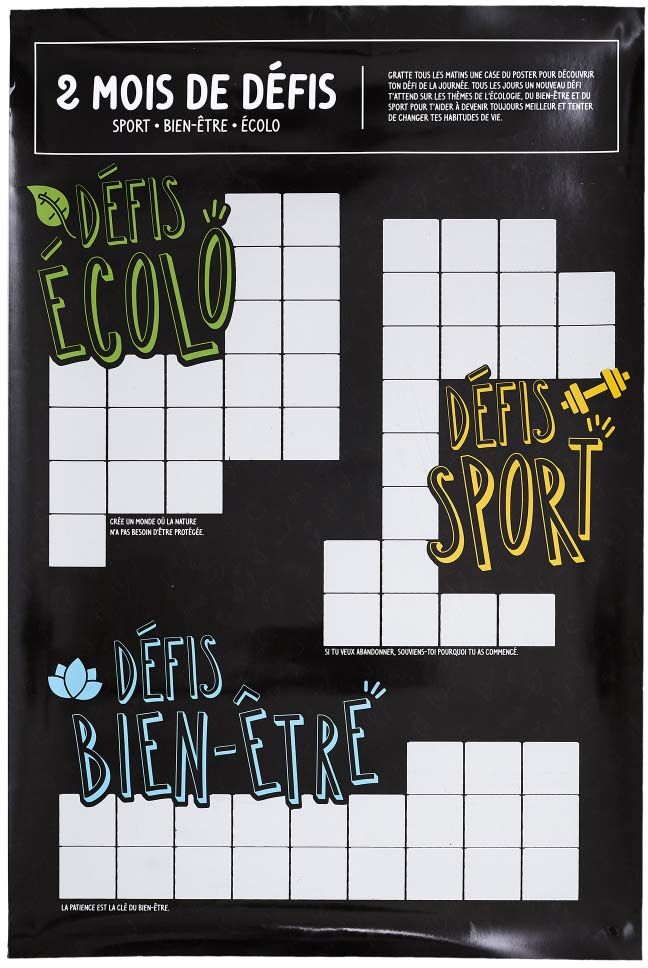 2 MOIS DE DÉFIS
SPORT • BIEN-ÊTRE • ÉCOLO
GRATTE TOUS LES MATINS UNE CASE DU POSTER POUR DÉCOUVRIR
TON DÉFI DE LA JOURNÉE. TOUS LES JOURS UN NOUVEAU DÉFI
T'ATTEND SUR LES THÈMES DE L'ÉCOLOGIE, DU BIEN-ÊTRE ET DU
SPORT POUR T'AIDER À DEVENIR TOUJOURS MEILLEUR ET TENTER
DE CHANGER TES HABITUDES DE VIE.
DÉFIS
ÉCOLO
CRÉE UN MONDE OÙ LA NATURE
N'A PAS BESOIN D'ÊTRE PROTÉGÉE.
DÉFIS
SPORT
SI TU VEUX ABANDONNER, SOUVIENS-TOI POURQUOI TU AS COMMENCÉ.
DÉFIS
BIEN-ÊTRE
LA PATIENCE EST LA CLÉ DU BIEN-ÊTRE.